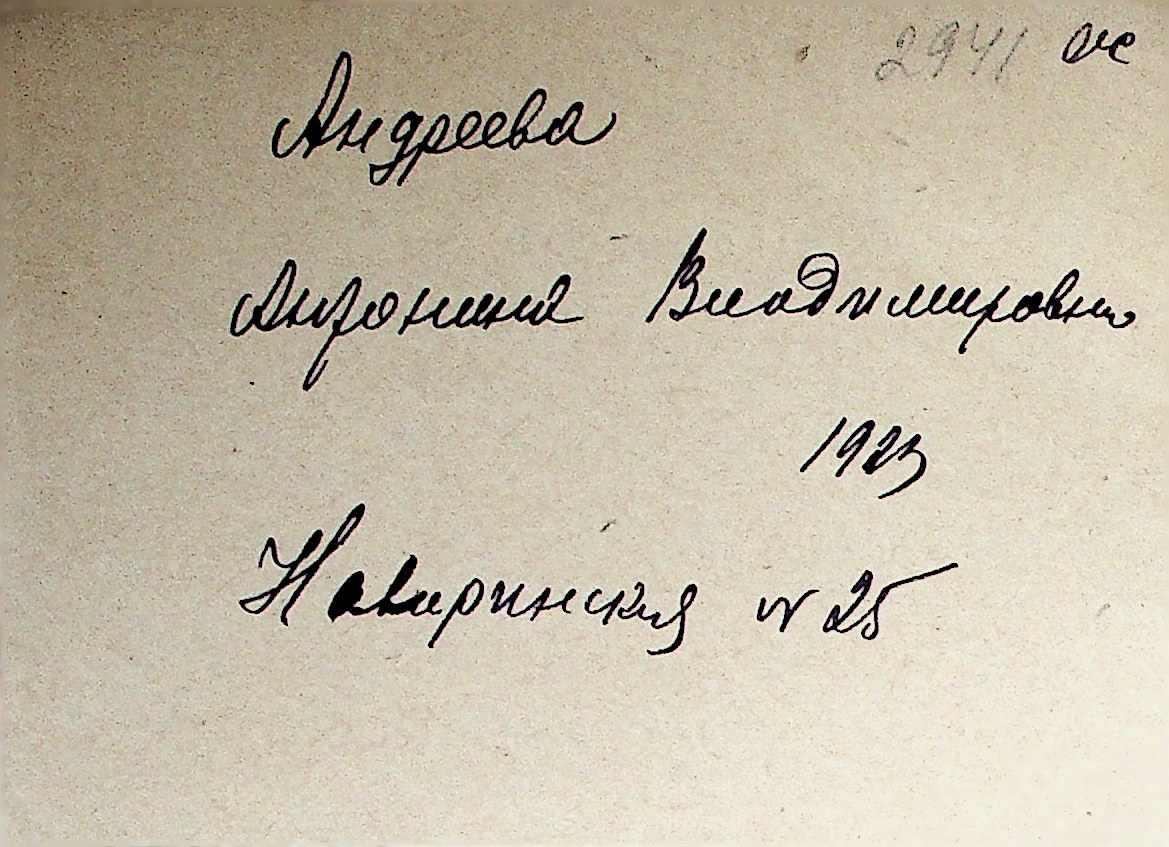 2941
Андреева
Антонина Владимировна
1923
Наваринская № 25